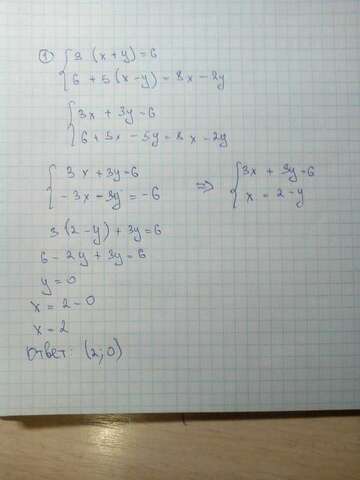 ① { 3 (x + y) = 6
6 + 5 (x - y) = 8x - 2y
{ 3x + 3y = 6
6 + 5x - 5y = 8x - 2y
{ 3x + 3y = 6
-3x - 3y = -6
=> { 3x + 3y = 6
x = 2 - y
3 (2 - y) + 3y = 6
6 - 2y + 3y = 6
y = 0
x = 2 - 0
x = 2
Ответ: (2; 0)